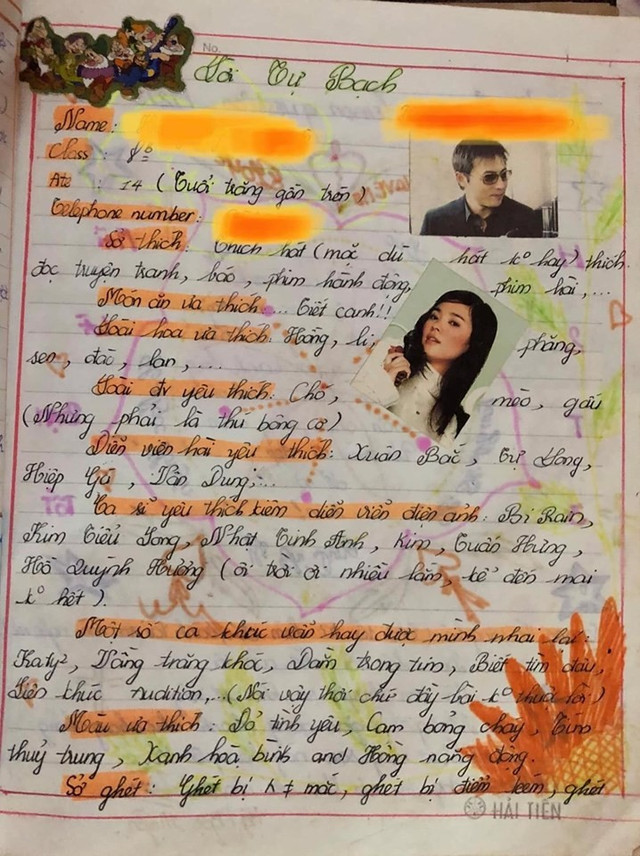 No.
Lời Tự Bạch
Name:
Class: 8⁶
Ate: 14 (Tuổi trăng gần tròn)
Telephone number:
Sở thích: thích hát (mặc dù hát k⁰ hay) thích
đọc truyện tranh, báo, phim hành động, phim hài,...
Món ăn ưa thích... Tiết canh!!
Loài hoa ưa thích: Hồng, li, phăng,
sen, đào, lan, ...
Loài đv yêu thích: Chó, mèo, gấu
(Nhưng phải là thú bông cơ)
Diễn viên hài yêu thích: Xuân Bắc, Tự Long,
Hiệp Gà, Vân Dung,...
Ca sĩ yêu thích kiêm diễn viên điện ảnh: Bi Rain,
Kim Tiểu Long, Nhật Tinh Anh, Kim, Tuấn Hưng,
Hồ Quỳnh Hương (ôi trời ơi nhiều lắm, kể đến mai
k⁰ hết).
Một số ca khúc vẫn hay được mình nhai lại:
Katy², Vầng trăng khóc, Đắm trong tim, Biết tìm đâu,
Liên khúc rudition,...(Nói vậy thôi chứ đầy bài k⁰ thuộc lời)
Màu ưa thích: Đỏ tình yêu, Cam bỏng cháy, Tím
thuỷ trung, Xanh hoà bình and Hồng năng động.
Sở ghét: Ghét bị mắc, ghét bị điểm kém, ghét
HẢI TIẾN